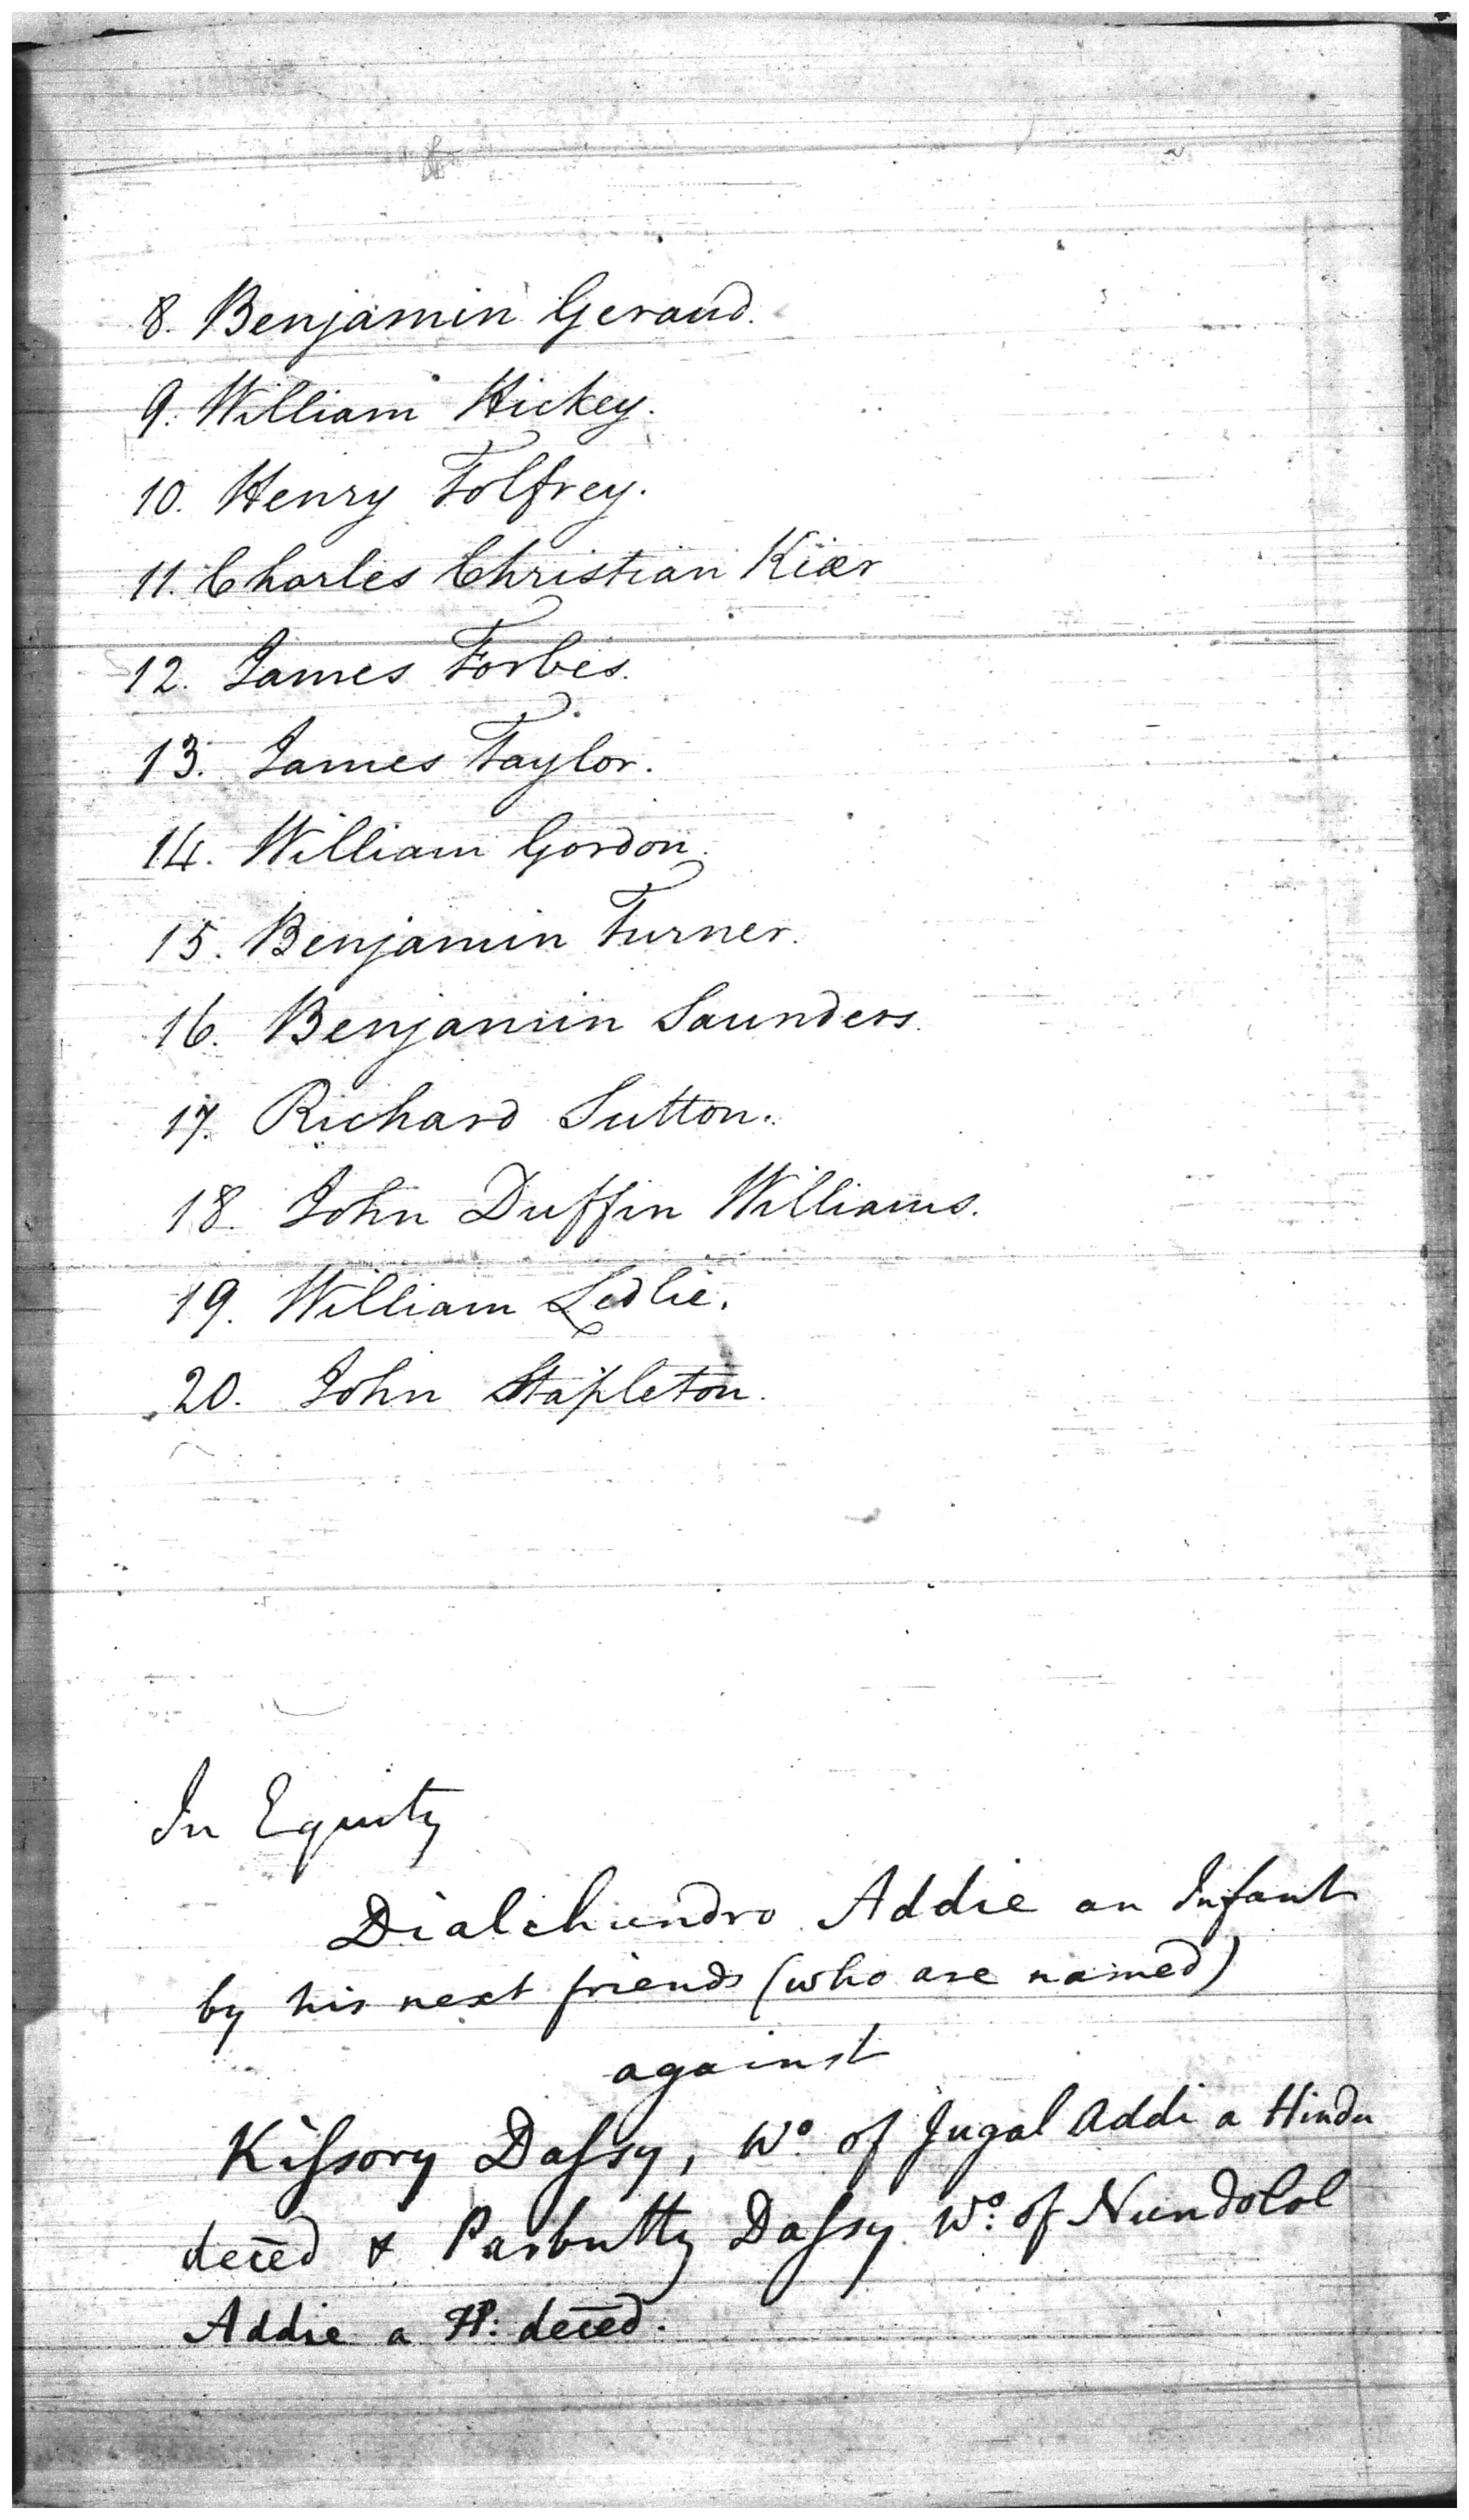 8. Benjamin Geraud.
9. William Hickey.
10. Henry Tolfrey.
11. Charles Christian Kiær
12. James Forbes.
13. James Taylor.
14. William Gordon.
15. Benjamin Turner.
16. Benjamin Saunders.
17. Richard Sutton.
18. John Duffin Williams.
19. William Ledlie.
20. John Stapleton.
In Equity
Dialchundro Addie an Infant
by his next friends (who are named)
against
Kiſsory Daſsy, Wo. of Jugal Addi a Hindu
decēd & Parbutty Daſsy Wo. of Nundolol
Addie a H: decēd.